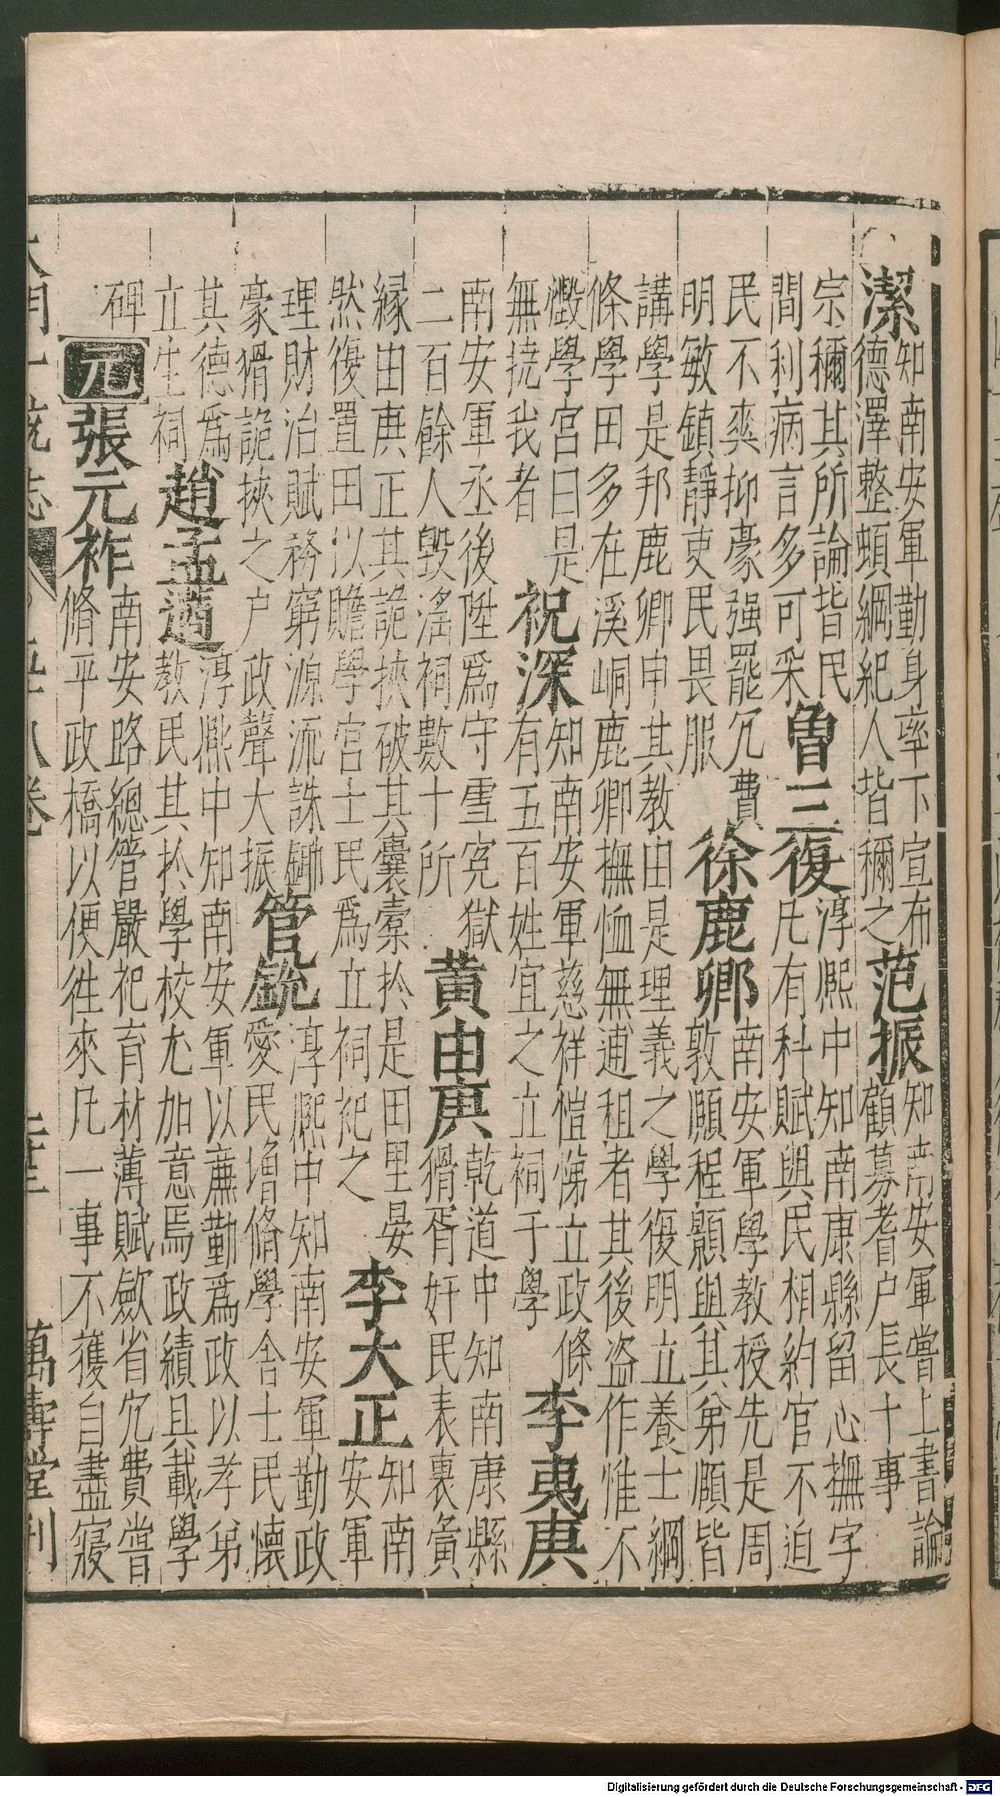 潔
知南安軍勤身率下宣布
德澤整頓綱紀人皆稱之
范振
知南安軍嘗上書論
顧募耆户長十事
宗稱其所論皆民
間利病言多可采
魯三復
淳熈中知南康縣留心撫字
凡有科賦與民相約官不迫
民不爽抑豪强罷冗費
明敏鎮靜吏民畏服
徐鹿卿
南安軍學教授先是周
敦願程顥與其弟頤皆
講學是邦鹿卿申其教由是理義之學復明立養士綱
條學田多在溪峒鹿卿撫恤無逋租者其後盜作惟不
燬學宫曰是
無撓我者
祝深
知南安軍慈祥愷悌立政條
有五百姓宜之立祠于學
李夷庚
南安軍丞後陞爲守雪冤獄
二百餘人毁滛祠數十所
黄由庚
乾道中知南康縣
猾胥奸民表裏夤
縁由庚正其詭挾破其囊橐扵是田里晏
然復置田以贍學宫士民爲立祠祀之
李大正
知南
安軍
理財治賦務窮源流誅鋤
豪猾詭挾之户政聲大振
管銳
淳熈中知南安軍勤政
愛民增脩學舍士民懷
其德爲
立生祠
趙孟適
淳熈中知南安軍以亷勤爲政以孝弟
教民其扵學校尤加意焉政績具載學
碑
元
張元祚
南安路總管嚴祀育材薄賦斂省冗費嘗
脩平政橋以便徃來凡一事不獲自盡寢
大明一統志
五十八卷
萬壽堂刋
Digitalisierung gefördert durch die Deutsche Forschungsgemeinschaft - DFG